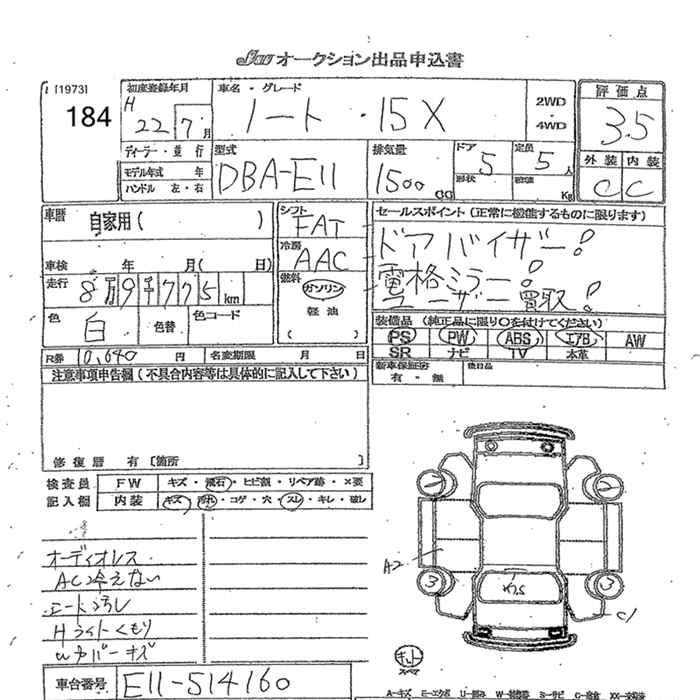 JU オークション出品申込書
[1973]
184
初度登録年月
H 22 7 月
車名・グレード
ノート・15X
2WD
4WD
評価点
3.5
ディーラー・並行
モデル年式 年
ハンドル 左・右
型式
DBA-E11
排気量
1500 CC
ドア
5
形状
定員
5 人
積載 Kg
外装 内装
C C
車歴
自家用( )
シフト
FAT
冷房
AAC
セールスポイント(正常に機能するものに限ります)
ドアバイザー!
電格ミラー!
ユーザー買取!
車検 年 月( 日)
走行
8万9千775 km
燃料
ガソリン
軽油
( )
色
白
色替
色コード
装備品(純正品に限り○を付けてください)
PS PW ABS エアB AW
SR ナビ TV 本革
R券 10,640 円
名変期限 月 日
新車保証書
有・無
後日品
注意事項申告欄(不具合内容等は具体的に記入して下さい)
修復歴 有 [箇所 ]
検査員
記入欄
FW キズ・飛石・ヒビ割・リペア跡・×要
内装 キズ・汚れ・コゲ・穴・スレ・キレ・破レ
オーディオレス
AC冷えない
シート汚レ
Hライトくもり
2
2
A2
3
3
C1
キット
スペア
車台番号 E11-514160
A-キズ E-エクボ